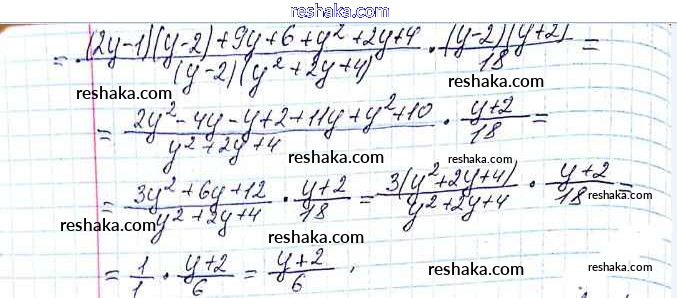 reshaka.com
= ((2y-1)(y-2)+9y+6+y²+2y+4)/((y-2)(y²+2y+4)) · ((y-2)(y+2))/18 =
reshaka.com reshaka.com
= (2y²-4y-y+2+11y+y²+10)/(y²+2y+4) · (y+2)/18 =
reshaka.com reshaka.com
= (3y²+6y+12)/(y²+2y+4) · (y+2)/18 = (3(y²+2y+4))/(y²+2y+4) · (y+2)/18 =
reshaka.com reshaka.com reshaka.com
= 1/1 · (y+2)/6 = (y+2)/6 .
reshaka.com reshaka.com reshaka.com